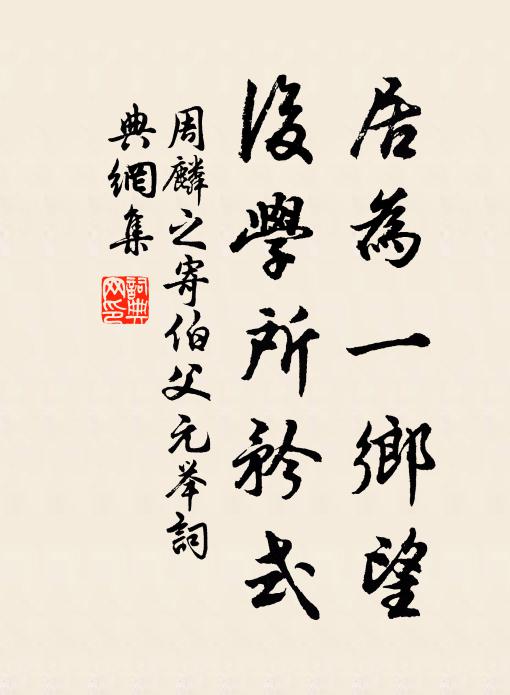 居為一鄉望
後學所矜式
周麟之寄伯父元举詞
典網集
詞典网印